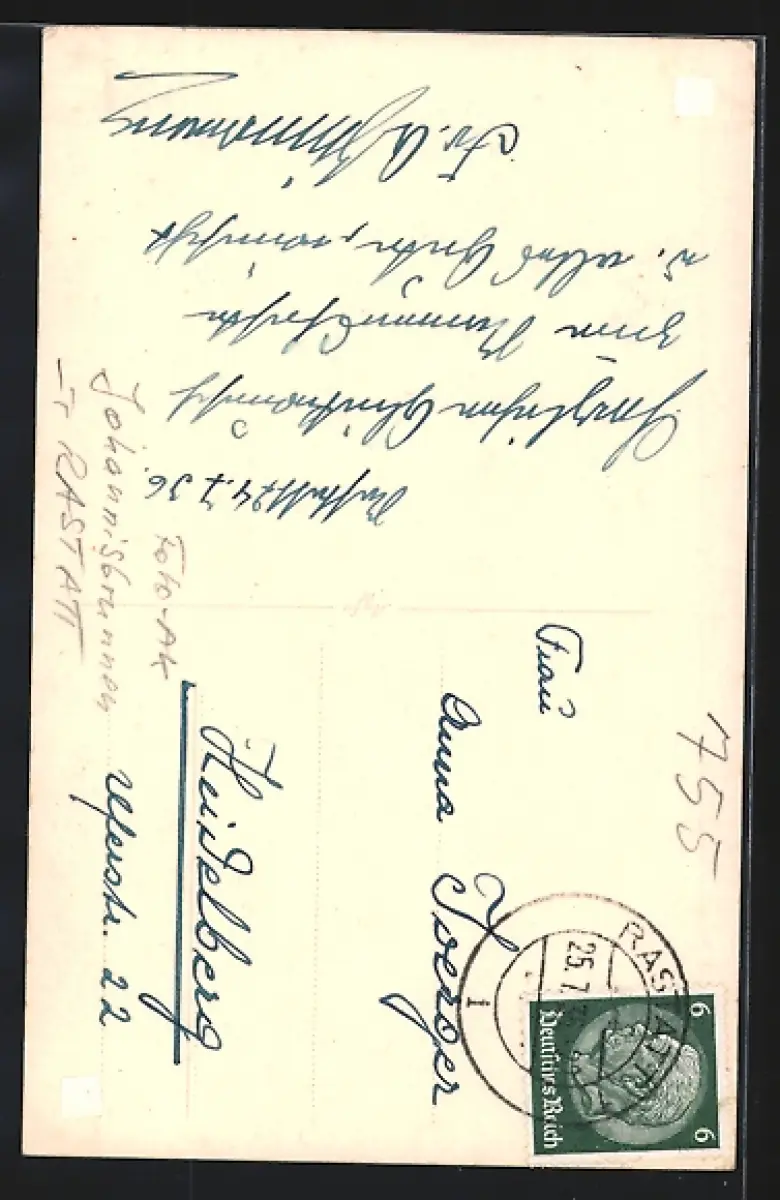 Rastatt 24.7.36.
Herzlichen Glückwunsch
zum Namensfeste
u. alles Gute, wünscht
Fr.
Frau
Anna Joerger
Heidelberg
Uferstr. 22
755
Foto-AK
Johannisbrunnen
I. RASTATT
RASTATT
25.7.
1
6
6
Deutsches Reich